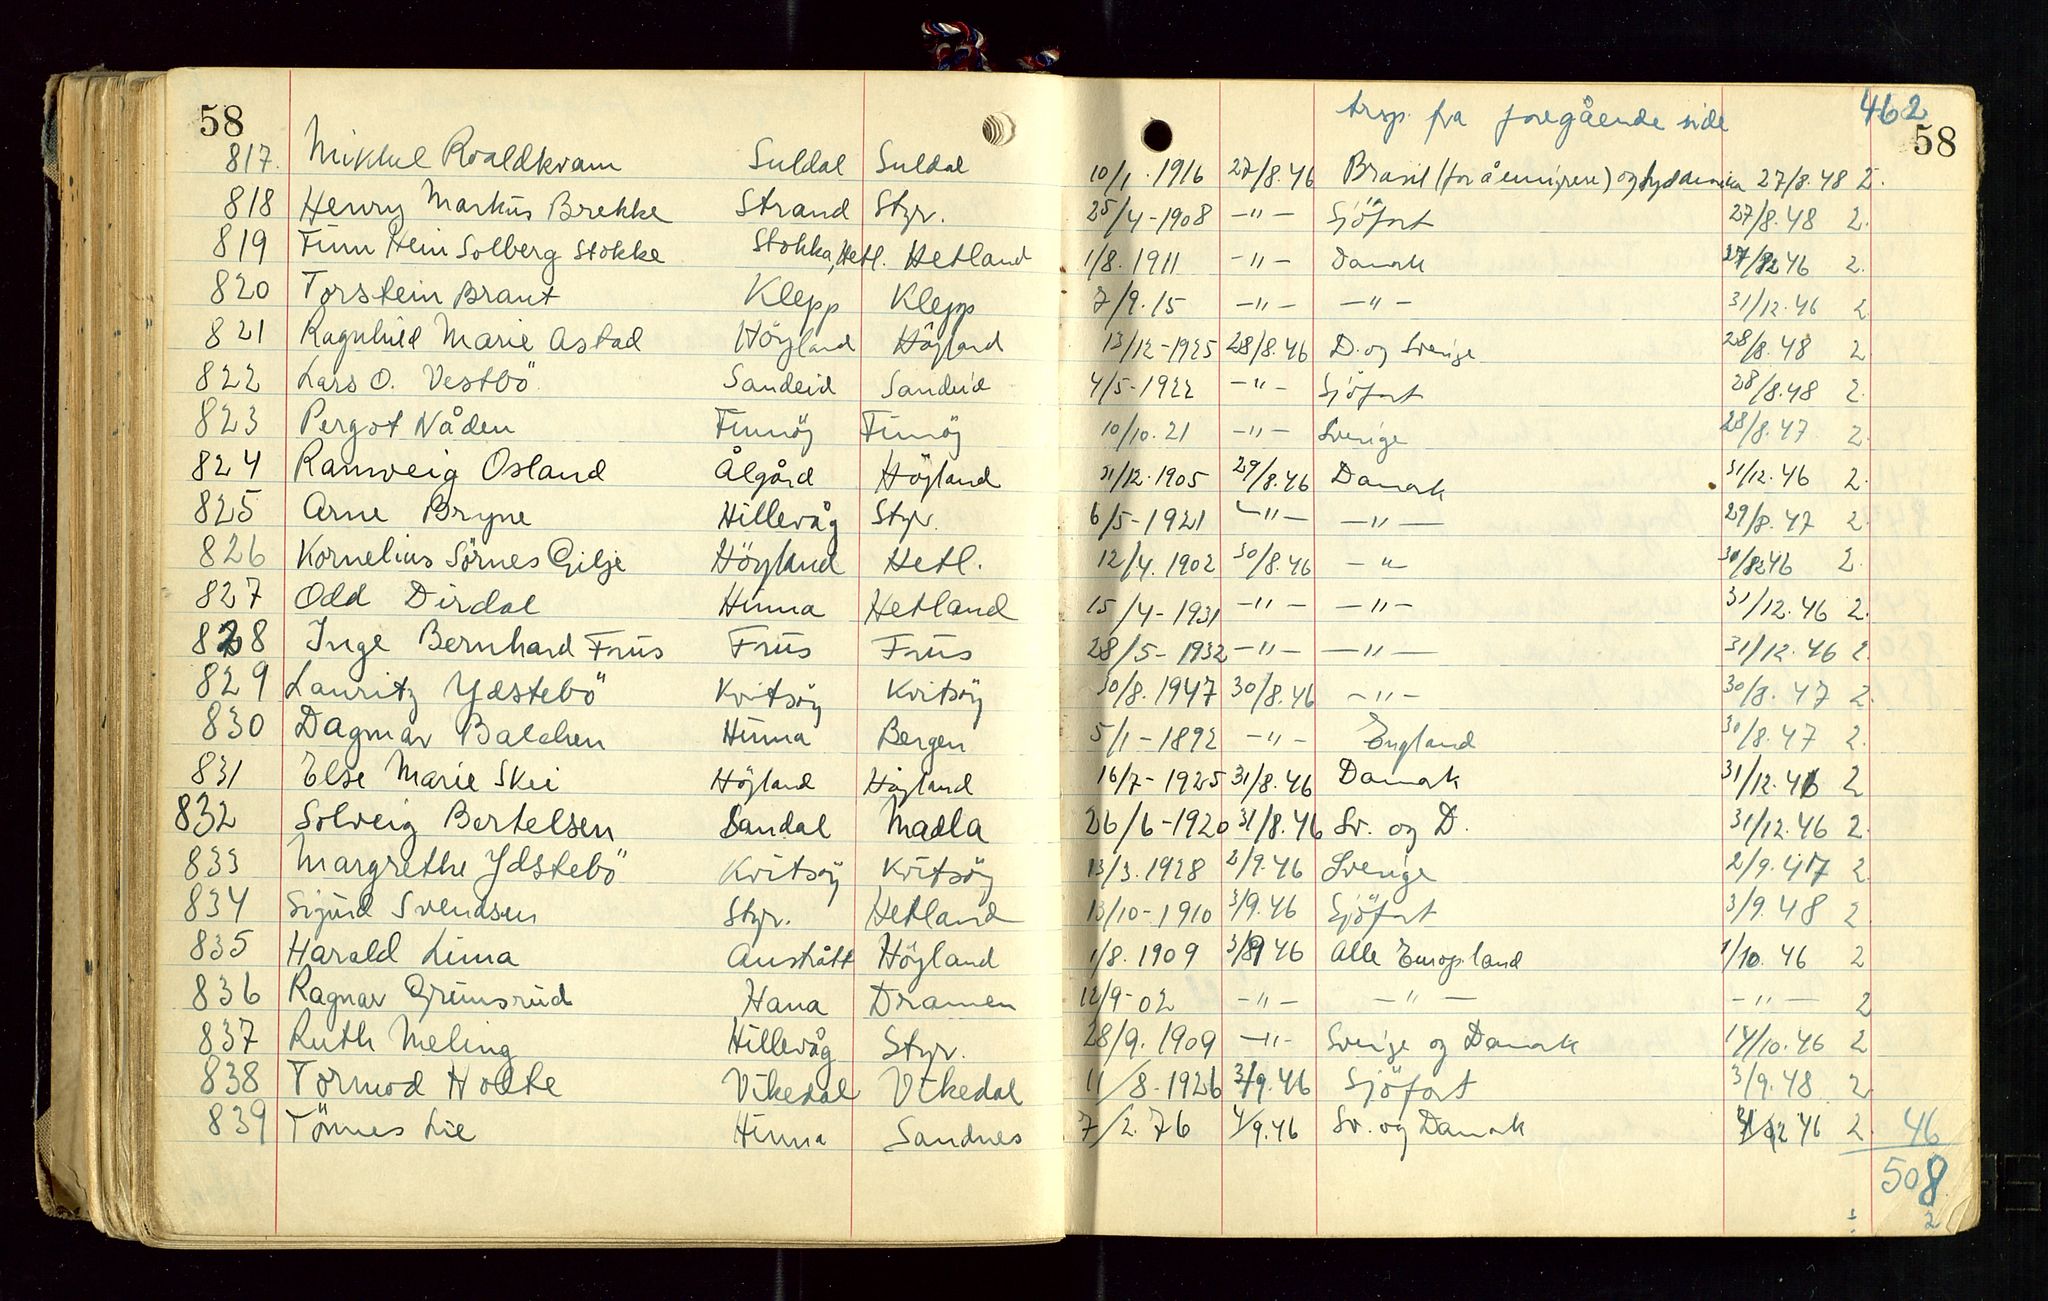 58 trsp. fra foregående side 462 58
817. Mikkel Roaldkvam Suldal Suldal 10/1. 1916 27/8.46 Brasil (for å emigrere) og Sydamerika 27/8.48 2.
818 Henry Markus Brekke Strand Styr. 25/4-1908 -"- Sjöfart 27/8.48 2.
819 Finn Hein Solberg Stokke Stokka, Hetl. Hetland 1/8.1911 -"- Danmark 46 2.
820 Torstein Braut Klepp Klepp 7/9.15 -"- -"- 31/12.46 2.
821 Ragnhild Marie Astad Höyland Höyland 13/12-1925 28/8.46 D. og Sverige 28/8.48 2.
822 Lars O. Vestbö Sandeid Sandeid 4/5-1922 -"- Sjöfart 28/8.48 2.
823 Pergot Nåden Finnöy Finnöy 10/10.21 -"- Sverige 28/8.47 2.
824 Ranveig Osland Ålgård Höyland 31/12.1905 29/8.46 Danmark 31/12.46 2.
825 Arne Bryne Hillevåg Styr. 6/5-1921 -"- -"- 29/8.47 2.
826 Kornelius Sörnes Gilje Höyland Hetl. 12/4.1902 30/8.46 -"- 46 2.
827 Odd Dirdal Hinna Hetland 15/4-1931 -"- -"- 31/12.46 2.
828 Inge Bernhard Friis Friis Friis 28/5-1932 -"- -"- 31/12.46 2.
829 Lauritz Ydstebö Kvitsöy Kvitsöy 30/8.1947 30/8.46 -"- 30/8.47 2.
830 Dagmar Balchen Hinna Bergen 5/1-1892 -"- England 30/8.47 2.
831 Else Marie Skei Höyland Höyland 16/7-1925 31/8.46 Danmark 31/12.46 2
832 Solveig Bertelsen Sandal Madla 26/6-1920 31/8.46 Sv. og D. 31/12.46 2.
833 Margrethe Ydstebö Kvitsöy Kvitsöy 13/3.1928 2/9.46 Sverige 2/9.47 2
834 Sigurd Svendsen Styr. Hetland 13/10-1910 3/9.46 Sjöfart 3/9.48 2
835 Harald Lima Austrått Höyland 1/8.1909 3/9 46 Alle Europ.land 1/10.46 2
836 Ragnar Grimsrud Hana Dramen 12/9-02 -"- -"- -"- 2
837 Ruth Meling Hillevåg Styr. 28/9.1909 -"- Sverige og Danmark 14/10.46 2
838 Tormod Holte Vikedal Vikedal 11/8-1926 3/9.46 Sjöfart 3/9.48 2
839 Tönnes Lie Hinna Sandnes 7/2.76 4/9.46 Sv. og Danmark 46 2. 46
508
2